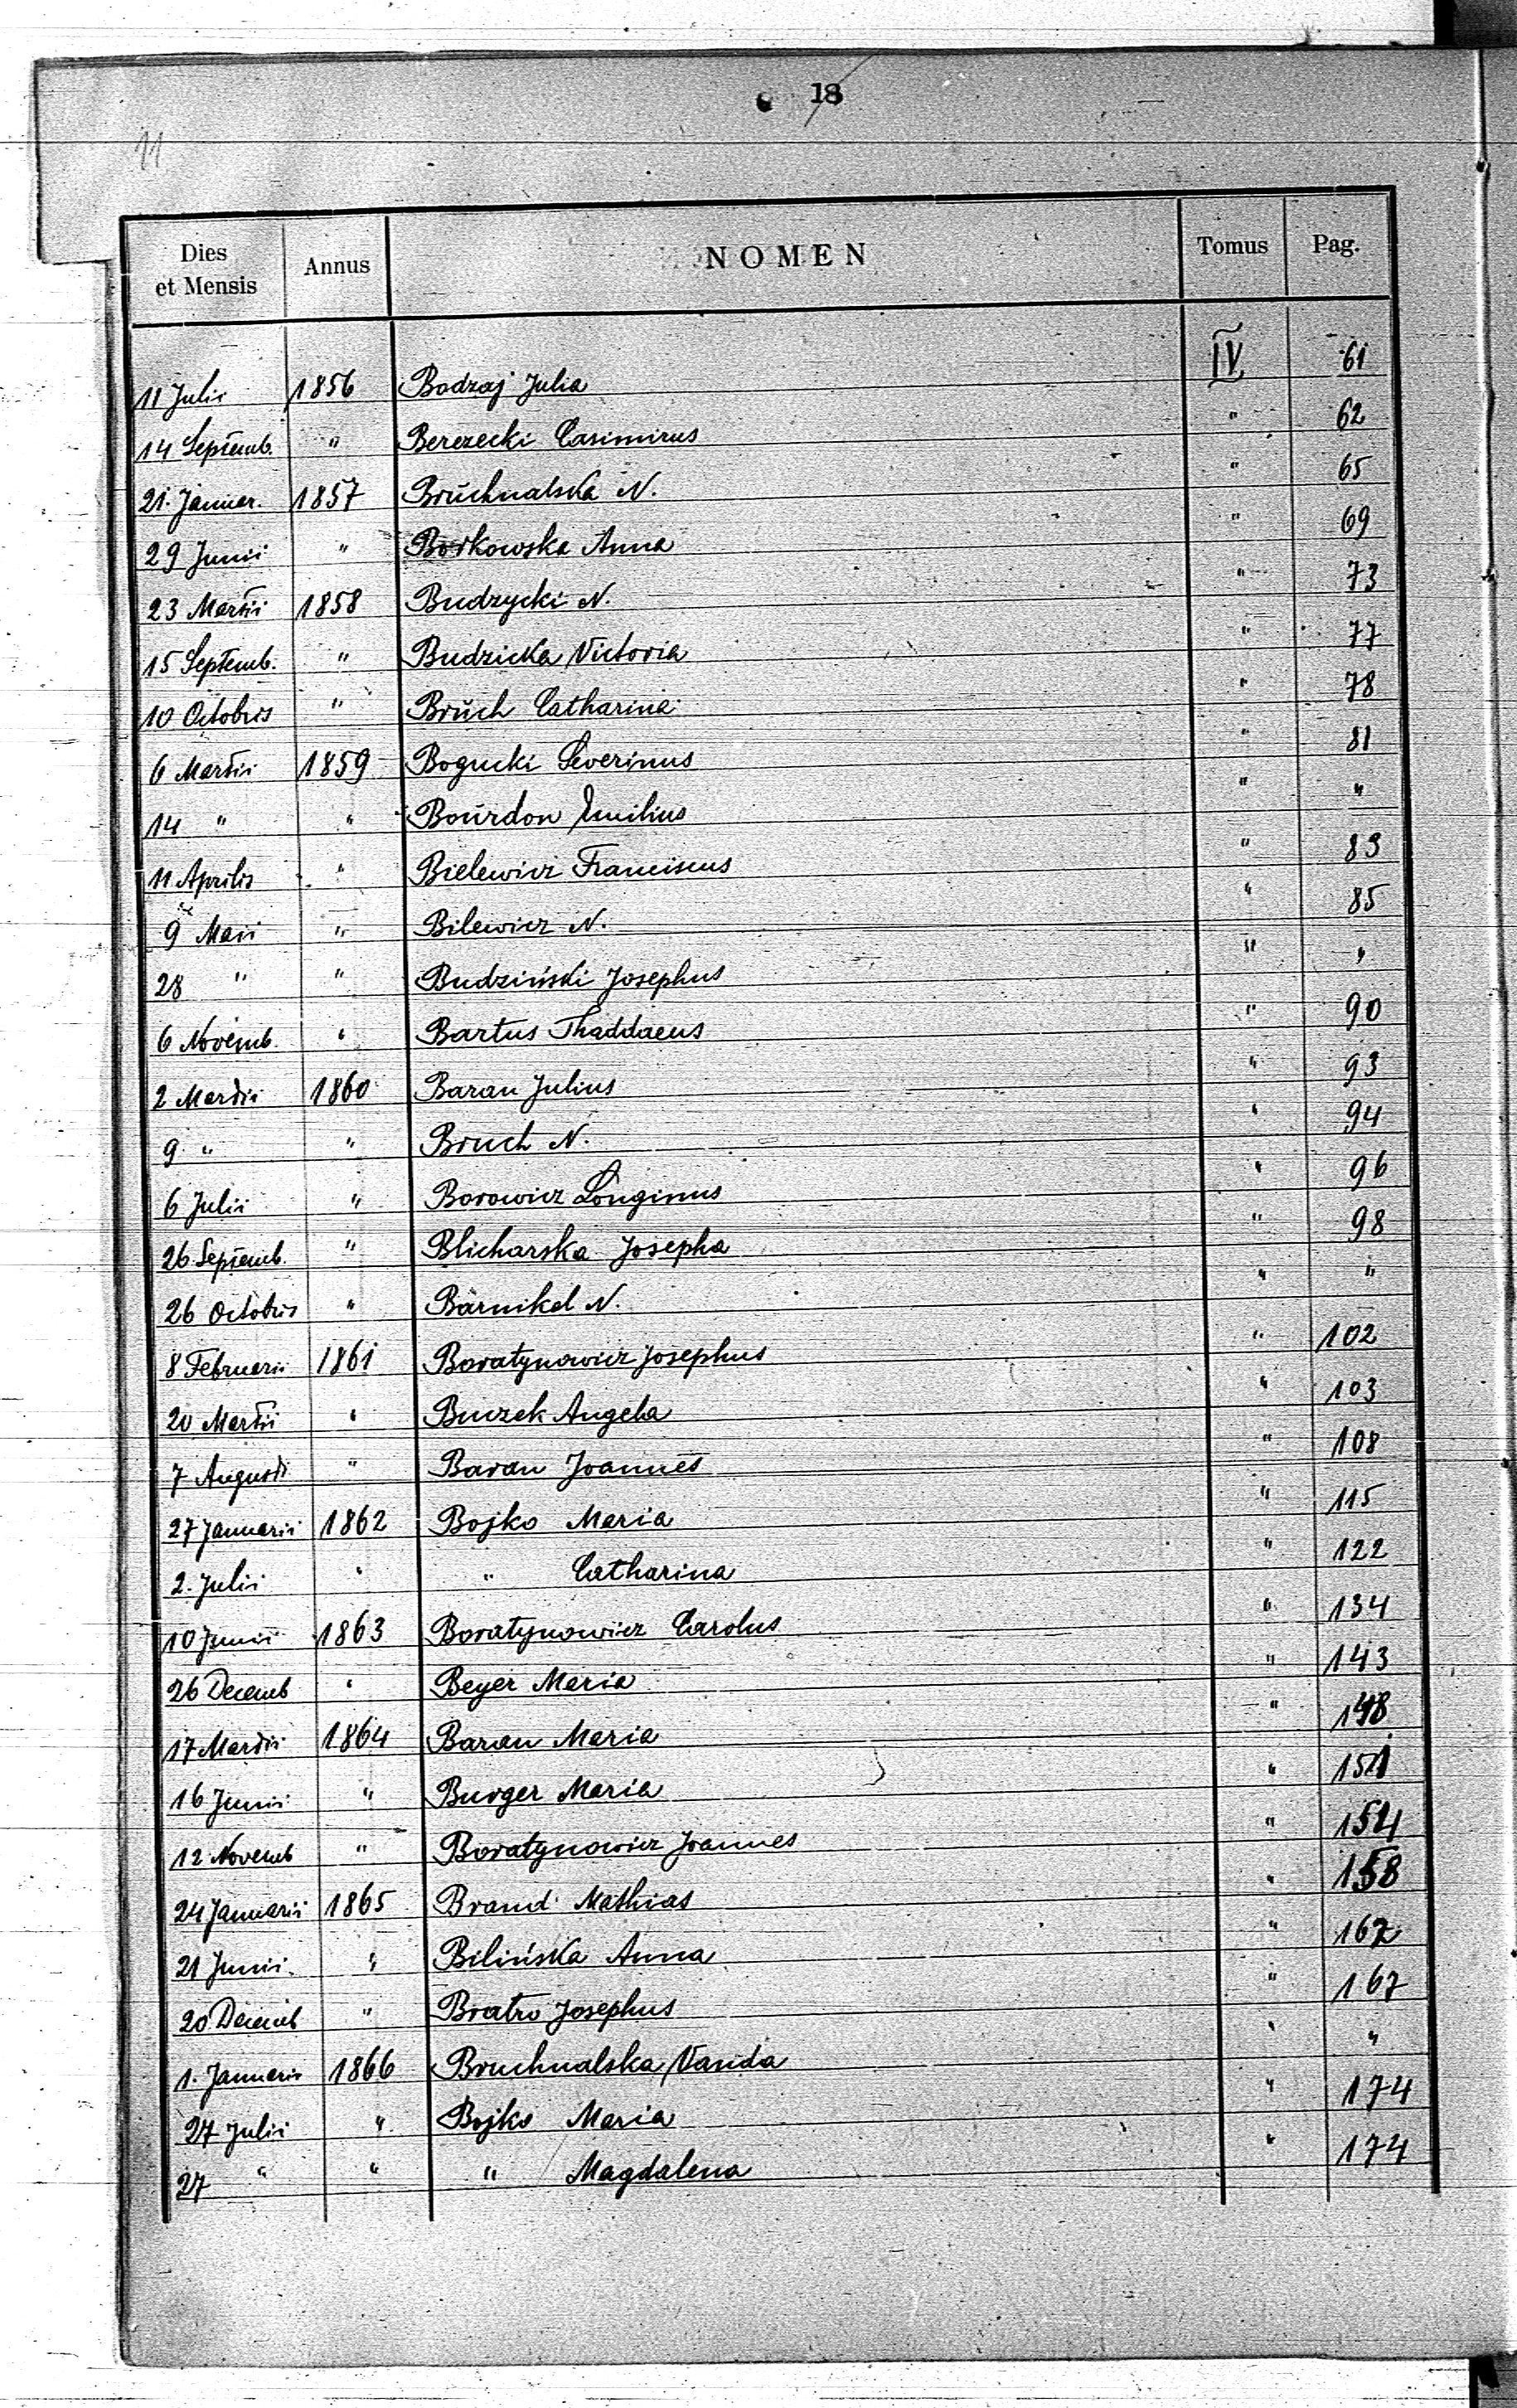 18
11
Dies et Mensis Annus NOMEN Tomus Pag.
11 Julii 1856 Bodzaj Julia IV 61
14 Septemb. " Berezecki Casimirus " 62
21. Januar. 1857 Brŭchnalska N. " 65
29 Junii " Borkowska Anna " 69
23 Martii 1858 Budzycki N. " 73
15 Septemb. " Budzicka Victoria " 77
10 Octobris " Brŭch Catharina " 78
6 Martii 1859 Bogucki Severinus " 81
14 " " Boŭrdon Emilius " "
11 Aprilis " Bielewicz Franciscus " 83
9 Maii " Bilewicz N. " 85
28 " " Budziński Josephus " "
6 Novemb. " Bartus Thaddaeus " 90
2 Martii 1860 Baran Julius " 93
9 " " Bruch N. " 94
6 Julii " Borowicz Longinus " 96
26 Septemb. " Blicharska Josepha " 98
26 Octobris " Barnikel N. " "
8 Februarii 1861 Boratynowicz Josephus " 102
20 Martii " Buczek Angela " 103
7 Augusti " Baran Joannes " 108
27 Januarii 1862 Bojko Maria " 115
2. Julii " " Catharina " 122
10 Junii 1863 Boratynowicz Carolus " 134
26 Decemb " Beyer Maria " 143
17 Martii 1864 Baran Maria " 148
16 Junii " Burger Maria " 151
12 Novemb " Boratynowicz Joannes " 154
24 Januarii 1865 Brand Mathias " 158
21 Junii " Bilińska Anna " 162
20 Decemb " Bratro Josephus " 167
1. Januarii 1866 Bruchnalska Vanda " "
27 Julii " Bojko Maria " 174
27 " " " Magdalena " 174